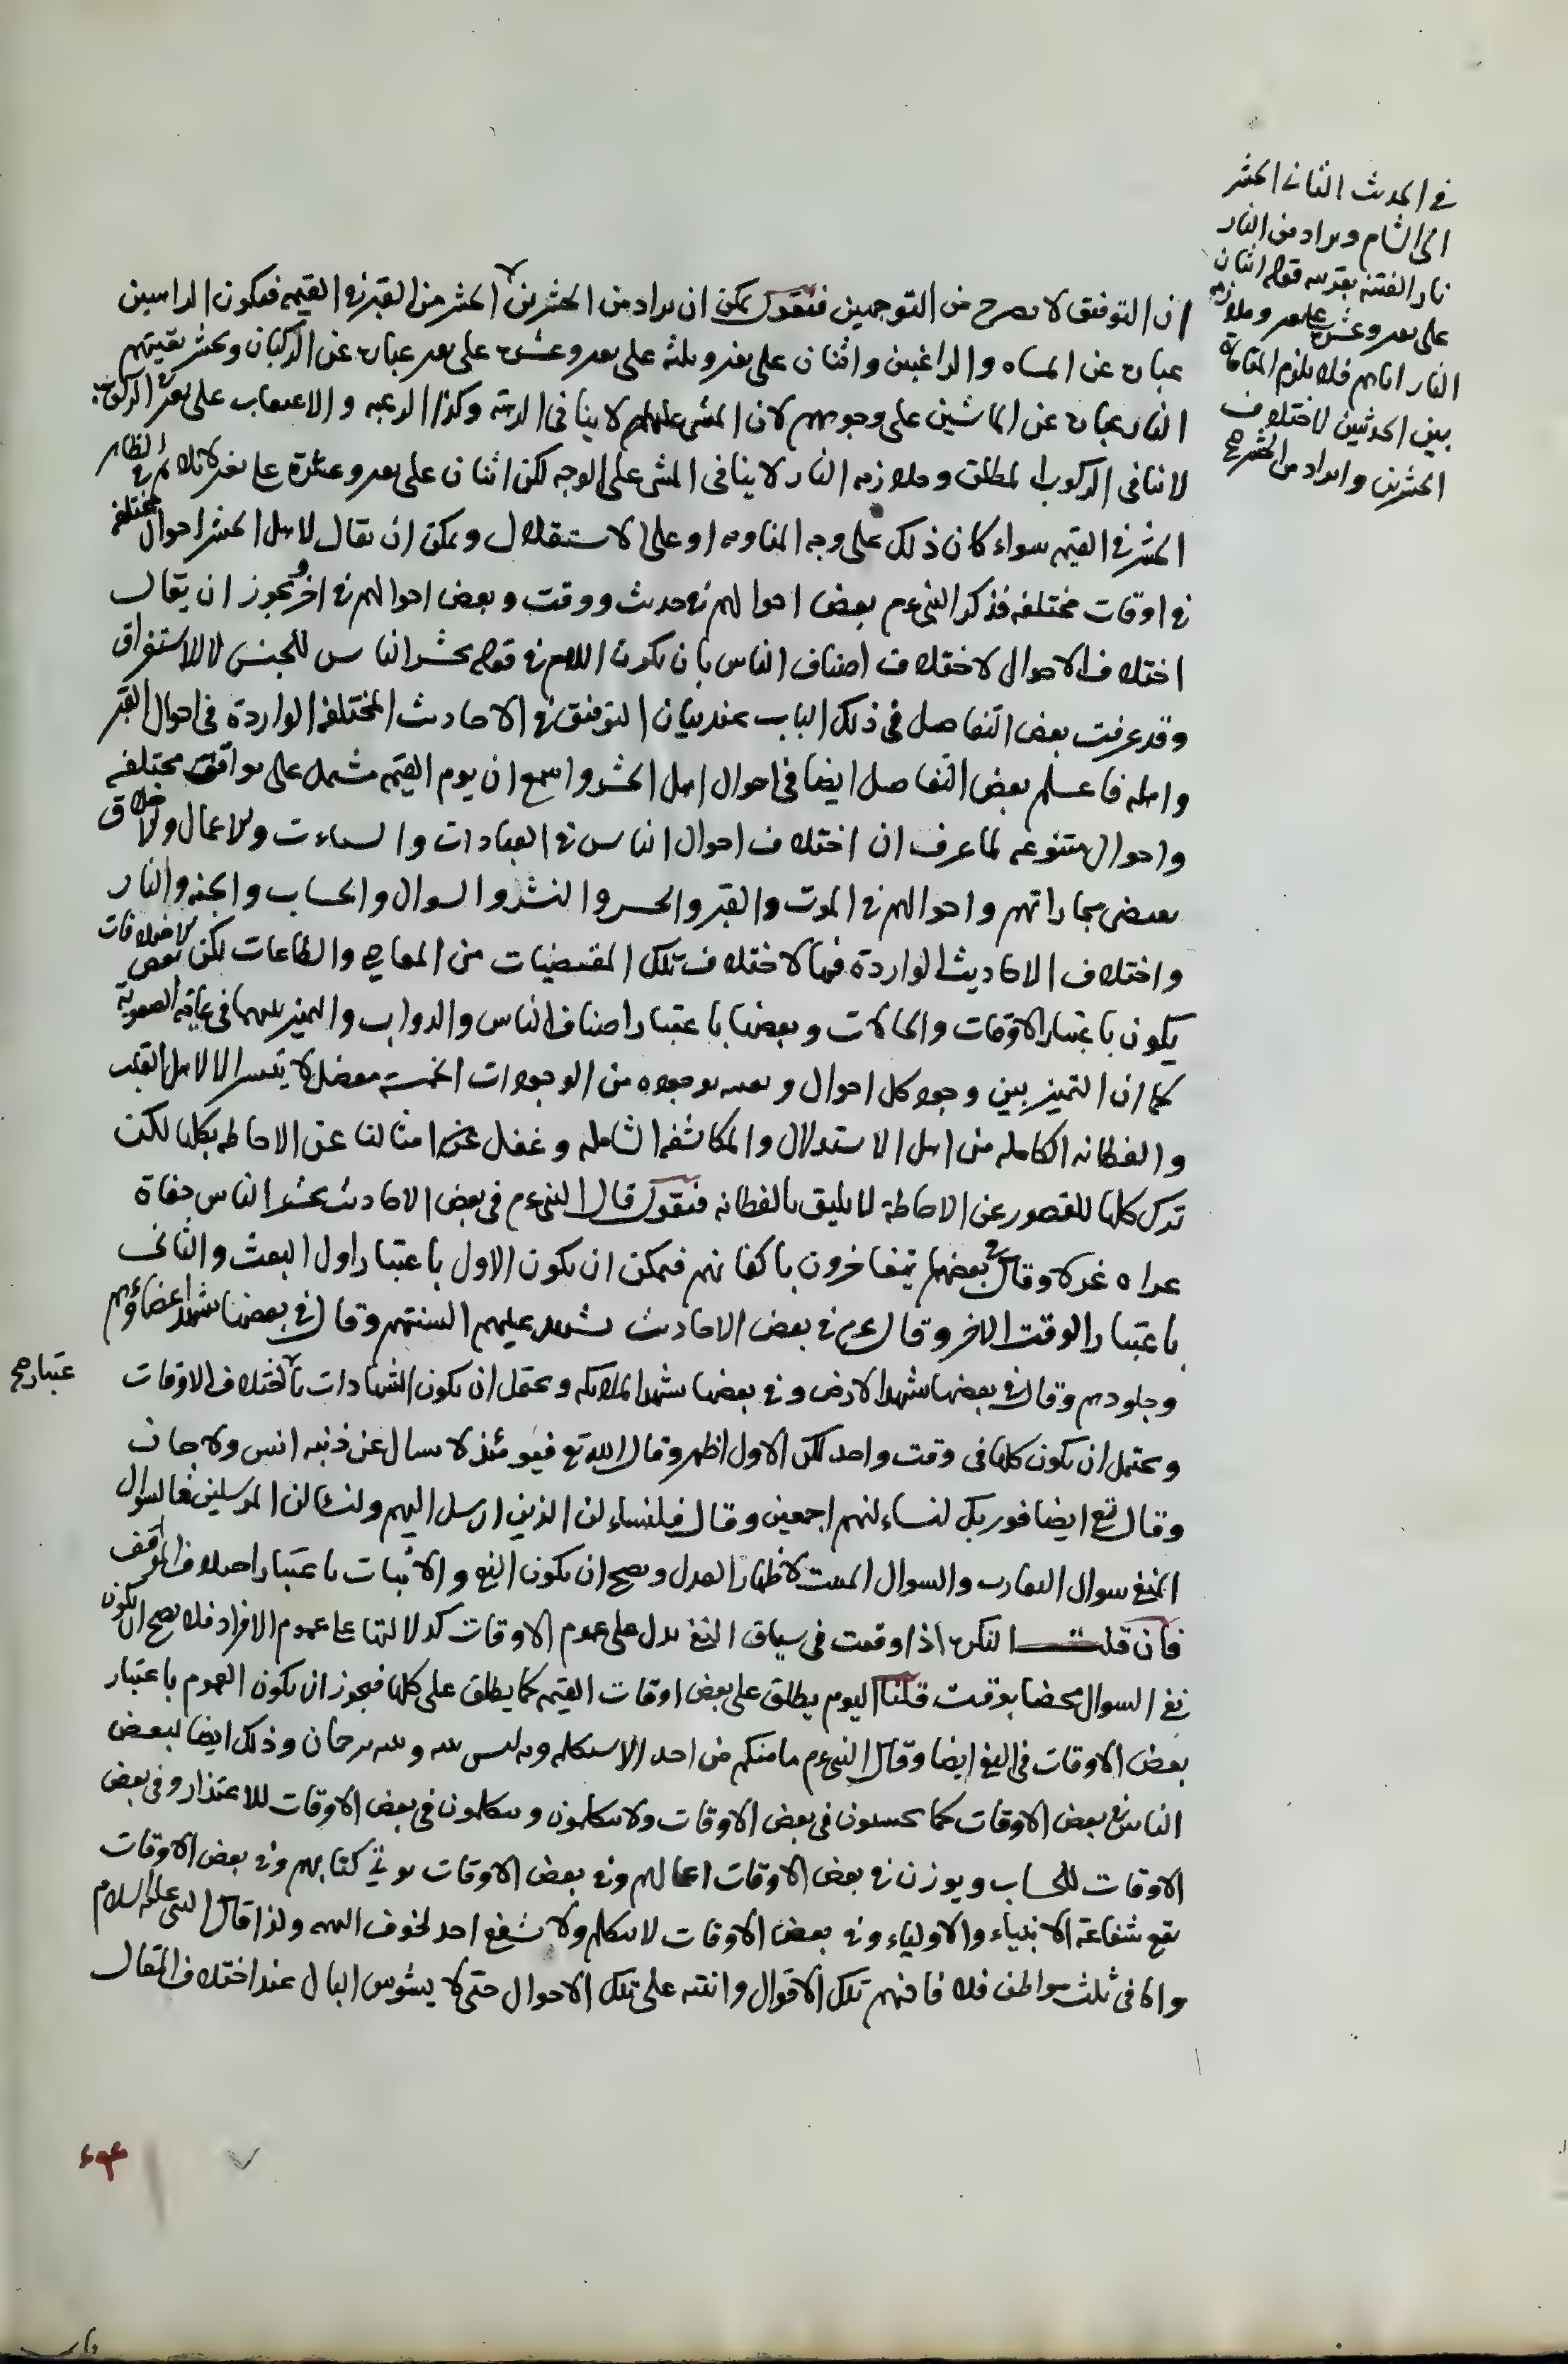 في الحديث الثاني الحشر
الى الشام ويراد من النار
نار الفتنة بقرينه قوله اثنان
على بعير وعشرة على بعير وملازمه
النار اياهم فلا يلزم المنافاة
بين الحديثين لاختلاف
الحشرين والمراد من الحشر صح
ان التوفيق لا يصرح من التوجيهين فنقول يمكن ان يراد من الحشرين الحشر من القبر في القيمه فيكون الراهبين
عبارة عن المشاه والراغبين واثنان على بعير وثلثه على بعير وعشرة على بعير عبارة عن الركبان وتحشر بقيتهم
النار عبارة عن الماشين على وجوههم لان المشي لا ينافي الرهبة وكذا الرغبه والاعتقاب على بعير
لا ينافي الركوب المطلق وملازمه النار لا ينافي المشي على الوجه لكن اثنان على بعير وعشرة على بعير
الحشر في القيمه سواء كان ذلك على وجه المناوبه او على الاستقلال ويمكن ان يقال لاهل الحشر احوال مختلفه
في اوقات مختلفه فذكر النبي عم بعض احوالهم في حديث ووقت وبعض احوالهم في اخر ويجوز ان يقال
اختلاف الاحوال لاختلاف اصناف الناس بان يكون اللام في قوله يحشر الناس للجنس لا للاستغراق
وقد عرفت بعض التفاصل في ذلك الباب عند بيان التوفيق في الاحاديث المختلفه الواردة في احوال القبر
واهله فاعلم بعض التفاصل ايضا في احوال اهل الحشر واسمع ان يوم القيمه مشتمل على مواقف مختلفه
واحوال متنوعه لما عرف ان اختلاف احوال الناس في العبادات والسيئات والاعمال والاخلاق
يقتضي مجازاتهم واحوالهم في الموت والقبر والحشر والنشر والسوال والحساب والجنه والنار
واختلاف الاحاديث الواردة فيها لاختلاف تلك المقتضيات من المعاصي والطاعات لكن بعض الاختلافات
يكون باعتبار الاوقات والحالات وبعضها باعتبار اصناف الناس والدواب والتميز بينهما في غاية الصعوبة
كما ان التميز بين وجوه كل احوال من الوجودات الخمسه معضل لا يتيسر الا لاهل القلب
والفطانه الكامله من اهل الاستدلال والمكاشفه الشامله وغفل عن امثالنا عن الاحاطه بكلها لكن
ترك كلها للقصور عن الاحاطة لا يليق بالفطانه فنقول قال النبي عم في بعض الاحاديث يحشر الناس حفاة
عراه غرلا وقال في بعضها يتفاخرون باكفانهم فيمكن ان يكون الاول باعتبار اول البعث والثاني
باعتبار الوقت الاخر وقال عم في بعض الاحاديث تشهد عليهم السنتهم وقال في بعضها تشهد اعضاؤهم
وجلودهم وقال في بعضها تشهد الارض وفي بعضها تشهد الملائكه ويحتمل ان يكون الشهادات باختلاف الاوقات
عتبار صح
ويحتمل ان يكون كلها في وقت واحد لكن الاول اظهر وقال الله تع فيومئذ لا يسال عن ذنبه انس ولا جان
وقال تع ايضا فوربك لنساءلنهم اجمعين وقال فلنساءلن الذين ارسل اليهم ولنساءلن المرسلين فالسوال
المنفي سوال التعارف والسوال المثبت لاظهار العدل ويصح ان يكون النفي والاثبات باعتبار اختلاف المواقف
فان قلت النكرة اذا وقعت في سياق النفي يدل على عموم الاوقات كدلالتها على عموم الافراد فلا يصح ان يكون
نفي السوال مخصا بوقت قلنا اليوم يطلق على بعض اوقات القيمه كما يطلق على كلها فيجوز ان يكون العموم باعتبار
بعض الاوقات في النفي ايضا وقال النبي عم ما منكم من احد الا سيكلمه ربه ليس بينه وبينه ترجمان وذلك ايضا لبعض
الناس في بعض الاوقات كما يحبسون في بعض الاوقات ولا يتكلمون ويتكلمون في بعض الاوقات للاعتذار وفي بعض
الاوقات للحساب ويوزن في بعض الاوقات اعمالهم وفي بعض الاوقات يوتي كتابهم وفي بعض الاوقات
يقع شفاعة الانبياء والاولياء وفي بعض الاوقات لا يتكلم ولا يشفع احد لخوف ولذا قال النبي عليه السلام
واما في ثلث مواطن فلا فافهم تلك الاقوال وانتبه على تلك الاحوال حتى لا يشوش البال عند اختلاف المقال